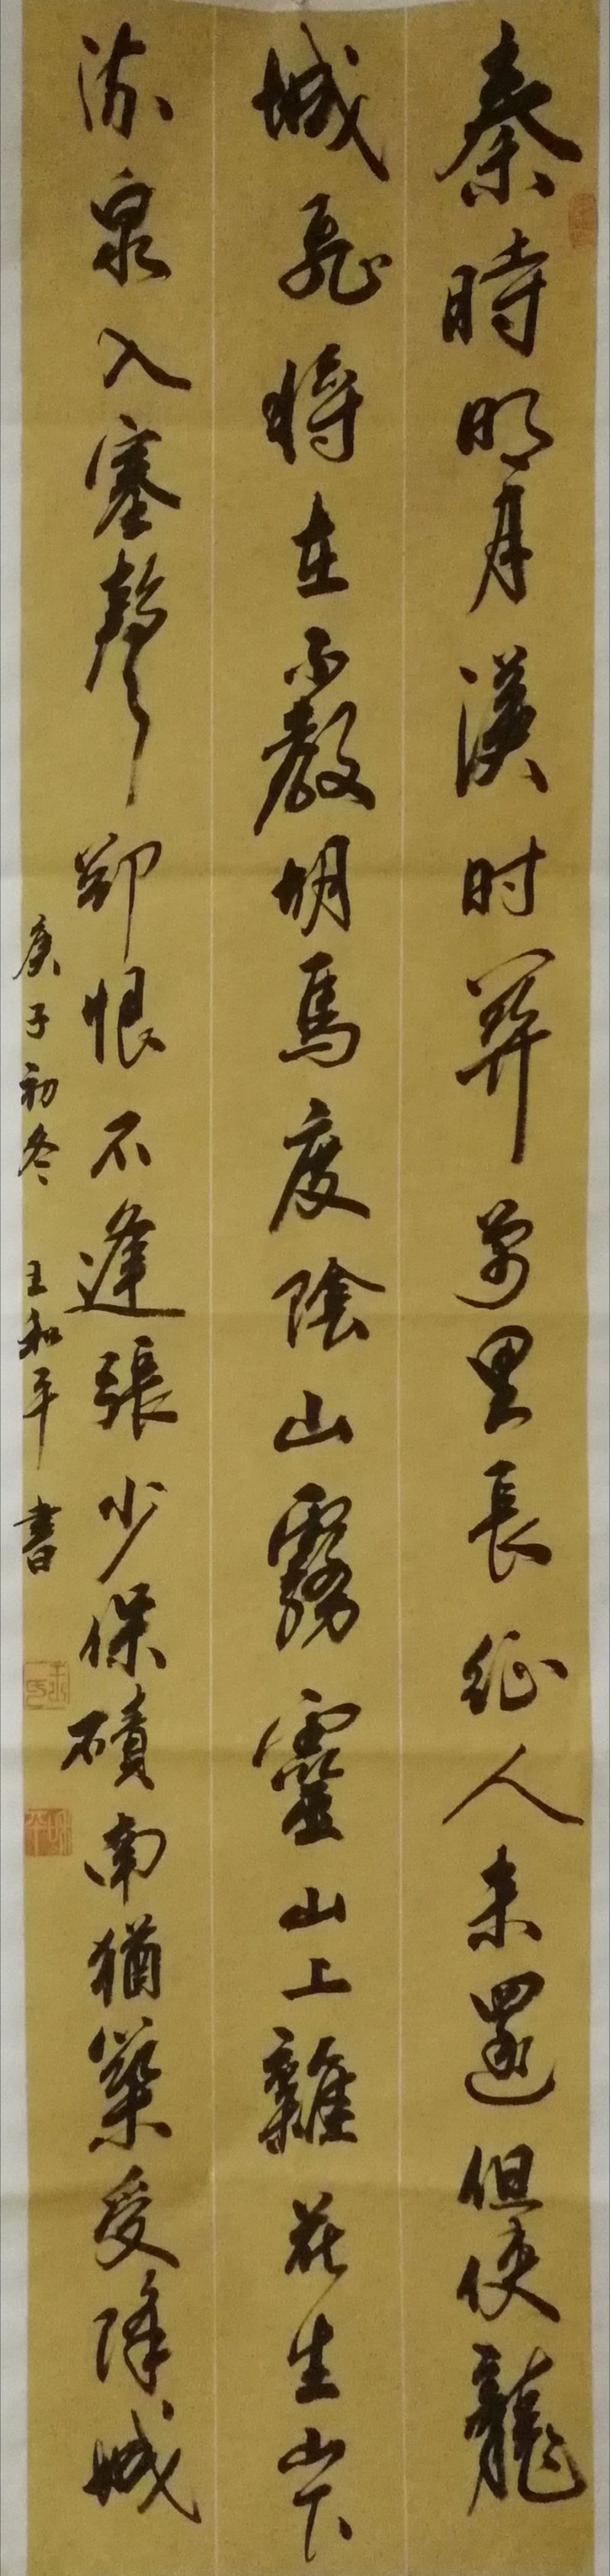 秦時明月漢时關萬里長征人未還但使龍
城飛將在不教胡馬度陰山霧靈山上雜花生山下
流泉入塞聲卻恨不逢張少保磧南猶築受降城
庚子初冬 王和平 書
和平